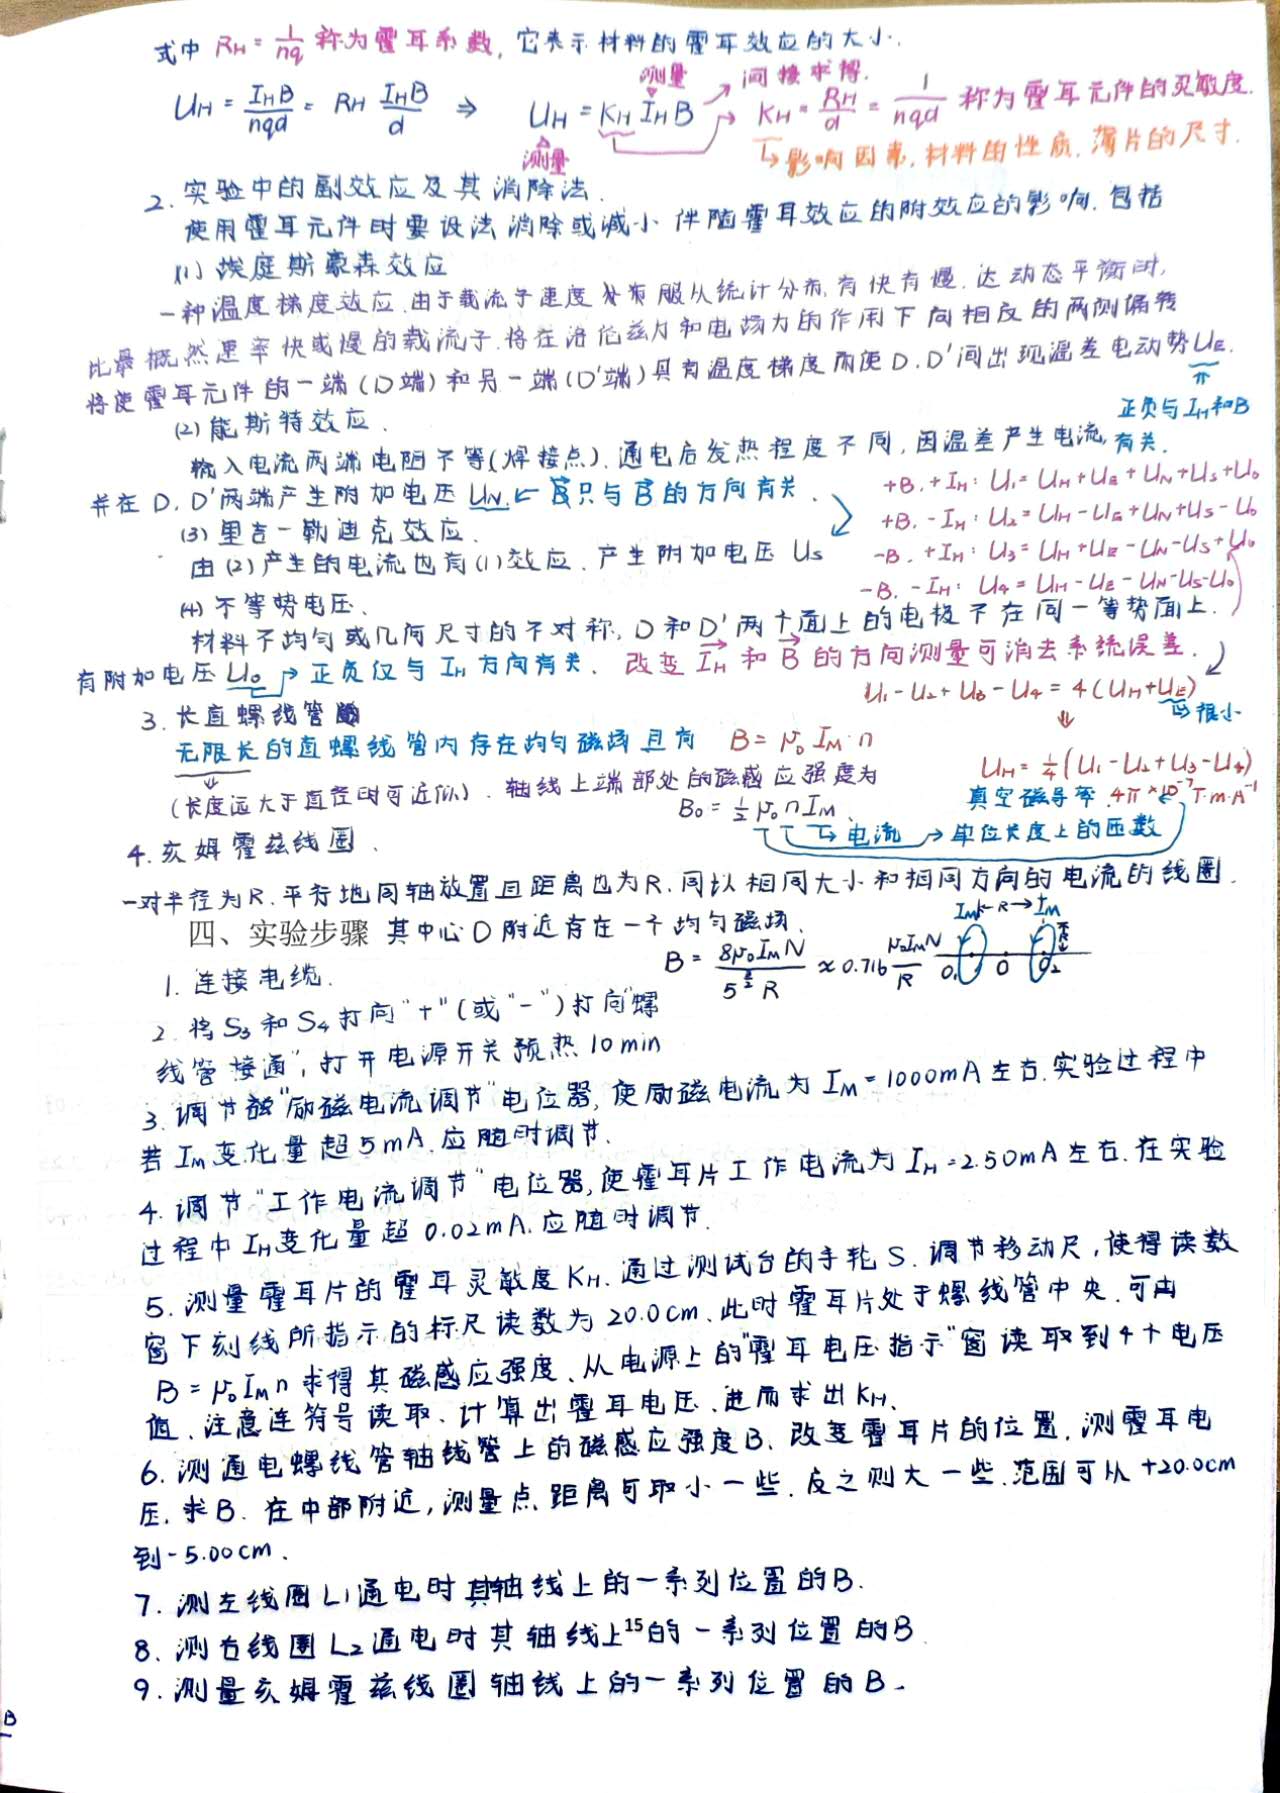 式中 R_H = 1/nq 称为霍耳系数, 它表示材料的霍耳效应的大小.
测量 → 间接求得.
U_H = I_H B/nqd = R_H I_H B/d ⇒ U_H = K_H I_H B → K_H = R_H/d = 1/nqd 称为霍耳元件的灵敏度.
测量 ↳影响因素,材料的性质.薄片的尺寸.
2. 实验中的副效应及其消除法.
使用霍耳元件时要设法消除或减小伴随霍耳效应的附效应的影响.包括
(1) 埃庭斯豪森效应
一种温度梯度效应.由于载流子速度分布服从统计分布,有快有慢.达动态平衡时,
比最概然速率快或慢的载流子.将在洛伦兹力和电场力的作用下向相反的两侧偏转
将使霍耳元件的一端(D端)和另一端(D'端)具有温度梯度而使D.D'间出现温差电动势U_E.
正负与I_H和B
有关.
(2) 能斯特效应.
输入电流两端电阻不等(焊接点).通电后发热程度不同,因温差产生电流,
并在D.D'两端产生附加电压U_N.← 只与B的方向有关.
+B.+I_H: U₁=U_H+U_E+U_N+U_S+U₀
+B.-I_H: U₂=U_H-U_E+U_N+U_S-U₀
-B.+I_H: U₃=U_H+U_E-U_N-U_S+U₀
-B.-I_H: U₄=U_H-U_E-U_N-U_S-U₀
(3) 里吉-勒迪克效应.
由(2)产生的电流也有(1)效应.产生附加电压 U_S
(4) 不等势电压.
材料不均匀或几何尺寸的不对称,D和D'两个面上的电极不在同一等势面上.
有附加电压U₀ → 正负仅与I_H方向有关. 改变I_H和B的方向测量可消去系统误差.
U₁-U₂+U₃-U₄=4(U_H+U_E)
⇓ ⇨很小
U_H=1/4(U₁-U₂+U₃-U₄)
3. 长直螺线管
无限长的直螺线管内存在均匀磁场且有 B=μ₀I_M·n
(长度远大于直径时可近似).轴线上端部处的磁感应强度为
B₀=1/2μ₀nI_M.
真空磁导率.4π×10⁻⁷T·m·A⁻¹
电流 → 单位长度上的匝数
4. 亥姆霍兹线圈.
一对半径为R.平行地同轴放置且距离也为R.同以相同大小和相同方向的电流的线圈.
四、实验步骤 其中心O附近存在一个均匀磁场.
B= 8μ₀I_M N/5^(3/2) R ≈0.716 μ₀I_M N/R
I_M ←R→ I_M
R
O₁ O O₂
1. 连接电缆.
2. 将S₃和S₄打向"+"(或"-")打向"螺
线管接通",打开电源开关预热10min
3. 调节"励磁电流调节"电位器,使励磁电流为I_M=1000mA左右.实验过程中
若I_M变化量超5mA.应随时调节.
4. 调节"工作电流调节"电位器,使霍耳片工作电流为I_H=2.50mA左右.在实验
过程中I_H变化量超0.02mA.应随时调节.
5. 测量霍耳片的霍耳灵敏度K_H.通过测试台的手轮S.调节移动尺,使得读数
窗下刻线所指示的标尺读数为20.0cm.此时霍耳片处于螺线管中央.可由
B=μ₀I_M n求得其磁感应强度.从电源上的"霍耳电压指示"窗读取到4个电压
值.注意连符号读取.计算出霍耳电压.进而求出K_H.
6. 测通电螺线管轴线管上的磁感应强度B.改变霍耳片的位置.测霍耳电
压.求B.在中部附近,测量点距离可取小一些.反之则大一些.范围可从+20.0cm
到-5.00cm.
7. 测左线圈L₁通电时其轴线上的一系列位置的B.
8. 测右线圈L₂通电时其轴线上的一系列位置的B.
15
9. 测量亥姆霍兹线圈轴线上的一系列位置的B.
B